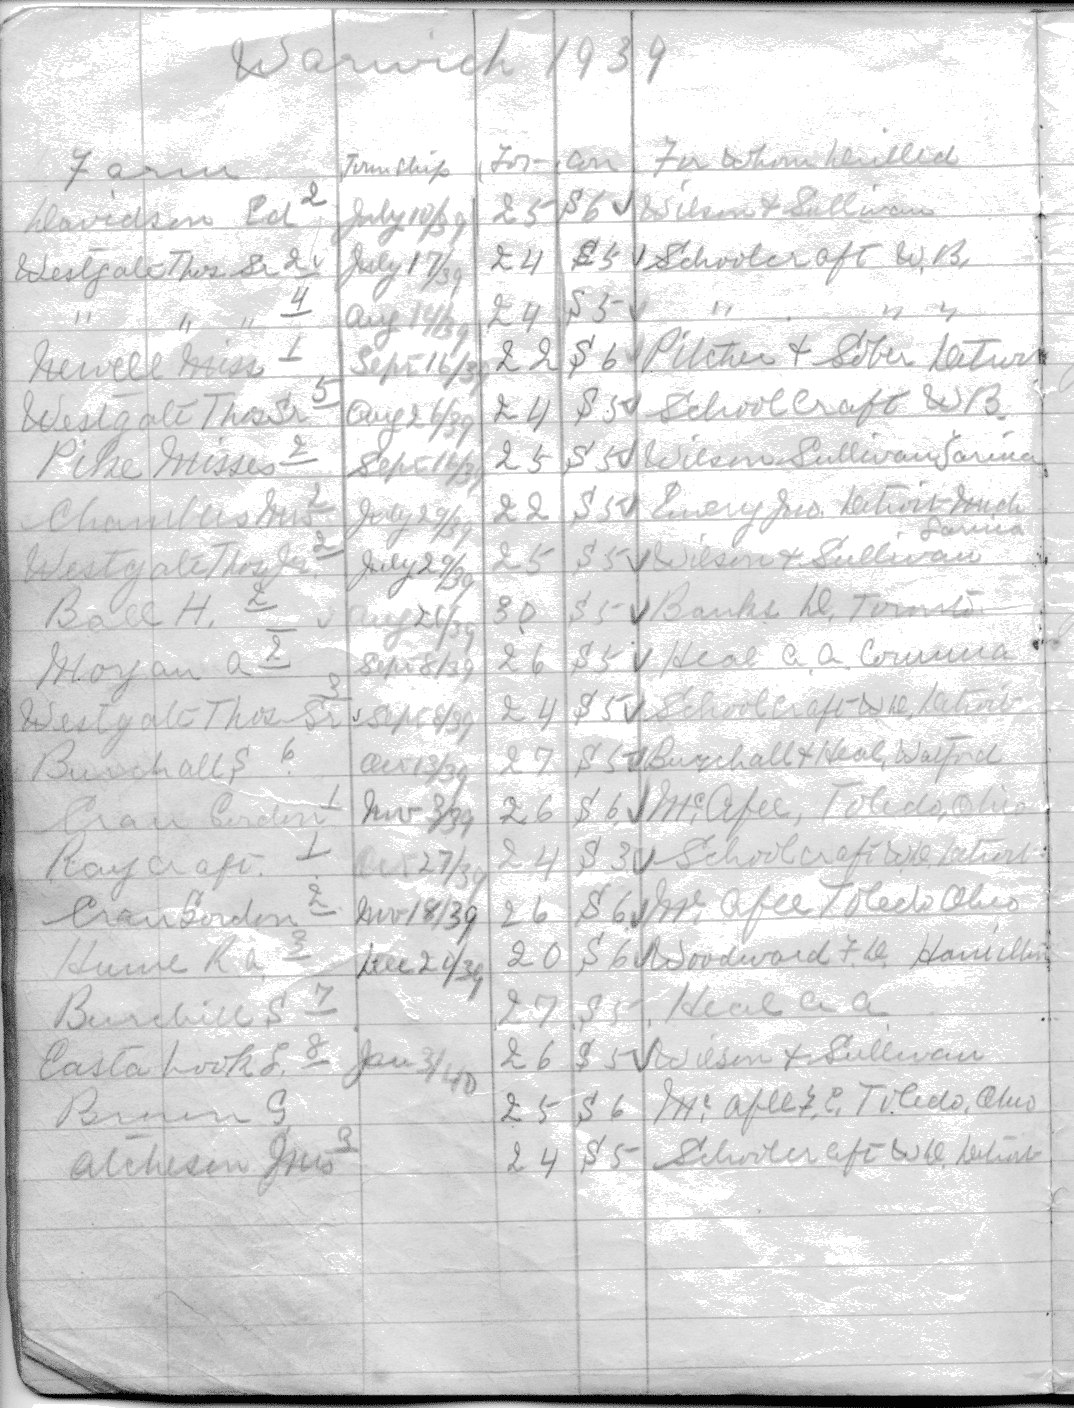 Warwick 1939
Farm Township Lot Con For Whom Drilled
Davidson Ed 2 July 10/39 25 $6 ✓ Wilson & Sullivan
Westgate Thos. Sr 2 ✓ July 17/39 24 $5 ✓ Schoolcraft W.B.
" " " 4 Aug 14/39 24 $5 ✓ " " "
Newell Miss 1 Sept 16/39 22 $6 ✓ Pilcher & Sober Detroit
Westgate Thos Sr. 5 Aug 26/39 24 $5 ✓ Schoolcraft W B.
Pike Misses 2 Sept 16/39 25 $5 ✓ Wilson Sullivan Sarnia
Chambers Mrs 2 July 29/39 22 $5 ✓ Emery Jno. Detroit Mich
Sarnia
Westgate Thos Jr. 2 July 29/39 25 $5 ✓ Wilson & Sullivan
Ball H. 2 ✓ Aug 26/39 30 $5 ✓ Banks D, Toronto
Morgan A 2 Sept 8/39 26 $5 ✓ Heal C. A. Corunna
Westgate Thos Sr 3 Sept 8/39 24 $5 ✓ Schoolcraft W.D. Detroit
Burchall S 6 Oct 13/39 27 $5 ✓ Burchall & Heal, Watford
Cran Gordon 1 Nov 3/39 26 $6 ✓ Mc. Afee, Toledo, Ohio
Raycraft. 1 Oct 27/39 24 $3 ✓ Schoolcraft W.D. Detroit
Cran Gordon 2 Nov 18/39 26 $6 ✓ Mc. Afee Toledo Ohio
Hume R.A. 3 Dec 21/39 20 $6 ✓ Woodward F.D. Hamilton
Burchill S 7 27 $5 Heal C. A
Eastabrook E. 8 Jan 3/40 26 $5 ✓ Wilson & Sullivan
Brown G 25 $6 Mc. Afee F. E, Toledo, Ohio
Atcheson Jno 3 24 $5 Schoolcraft W.D. Detroit